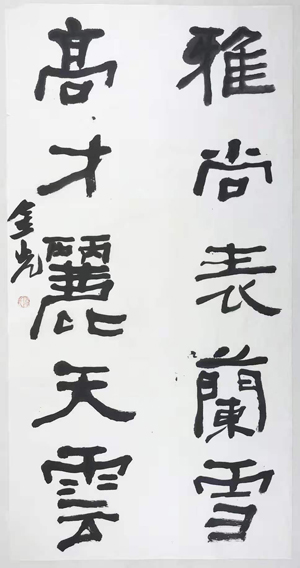 雅尚表蘭雪
高才麗天雲